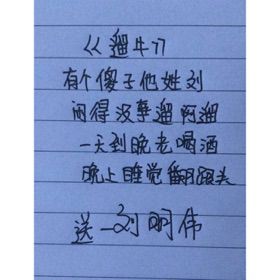 《遛牛》
有个傻子他姓刘
闲得没事遛阿遛
一天到晚老喝酒
晚上睡觉翻跟头
送—刘明伟